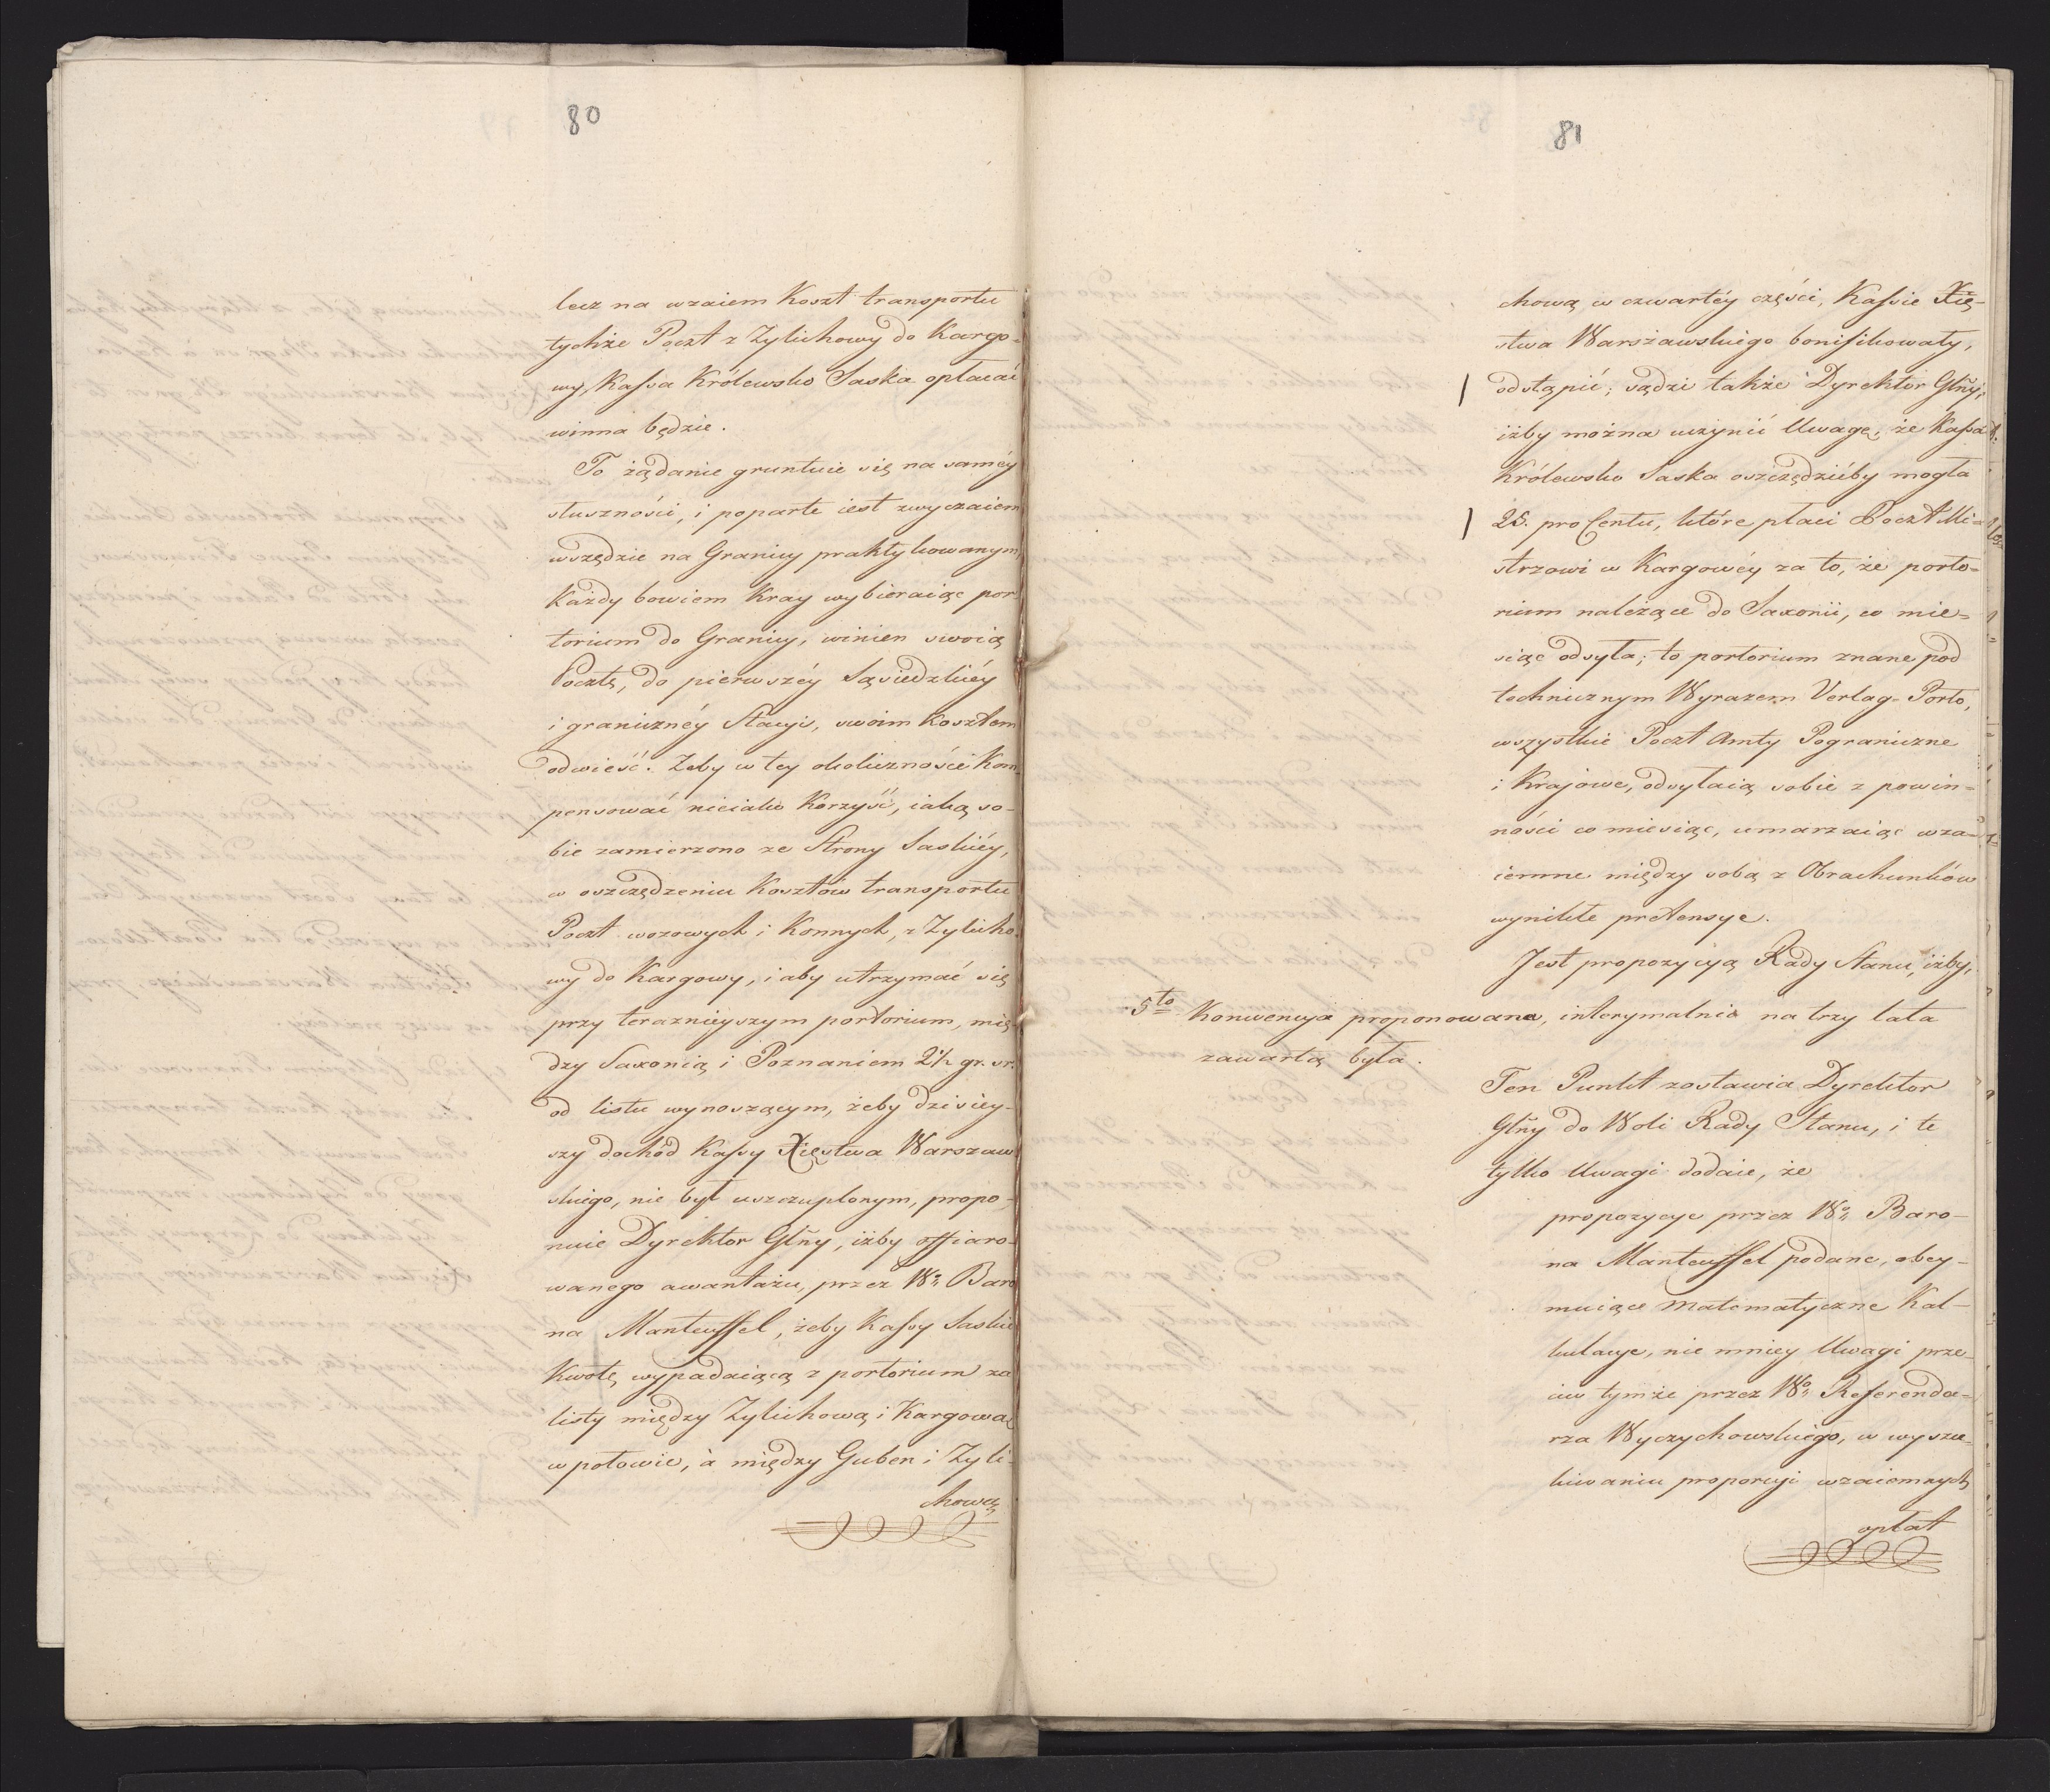 80
lecz na wzaiem Koszt transportu
tychże Poczt z Zylichowy do Kargo-
wy, Kassa Królewsko Saska opłacać
winna będzie.
To żądanie gruntuie się na saméy
słuszności, i poparte iest zwyczaiem
wszędzie na Granicy praktykowanym,
Każdy bowiem Kray wybieraiąc por-
torium do Granicy, winien swoią
Pocztę, do pierwszéy Sąsiedzkiéy
i granicznéy Stacyi, swoim Kosztem
odwieść. Żeby w tey okoliczności Kom-
pensować nieiako Korzyść, iaką so-
bie zamierzono ze Strony Saskiéy,
w oszczędzeniu Kosztów transportu
Poczt wozowych i Konnych, z Zylicho-
wy do Kargowy, i aby utrzymać się
przy teraznieyszym portorium, mię-
dzy Saxonią i Poznaniem 2½ gr. sr.
od listu wynoszącym, żeby dzisiey-
szy dochód Kassy Xięstwa Warszaw-
skiego, nie był uszczuplonym, propo-
nuie Dyrektor Głny, iżby offiaro-
wanego awantażu, przez Wo. Baro
na Manteuffel, żeby Kassy Saskie
Kwotę, wypadaiącą z portorium za
listy między Zylichową i Kargową
w połowie, à między Guben i Zyli-
chową
81
chową w czwartéy części, Kassie Xię-
stwa Warszawskiego bonifikowały,
odstąpić; sądzi także Dyrektor Głny,
iżby można uczynić Uwagę, że Kassa
Królewsko Saska oszczędzićby mogła
25. pro Centu, które płaci Poczt Mi-
strzowi w Kargowéy za to, że porto-
rium należące do Saxonii, co mie-
siąc odsyła; to portorium znane pod
technicznym Wyrazem Verlag-Porto,
wszystkie Poczt Amty Pograniczne
i Krajowe, odsyłaią sobie z powin-
ności co miesiąc, umarzaiąc wza-
iemne między sobą z Obrachunków
wynikłe pretensye.
Jest propozycyą Rady Stanu, iżby,
5to Konwencya proponowana, interymalnie na trzy lata
zawartą była.
Ten Punkt zostawia Dyrektor
Głny do Woli Rady Stanu, i te
tylko Uwagi dodaie, że
propozycye przez Wo. Baro-
na Manteuffel podane, obey-
muiące Matematyczne Kal-
kulacye, nie mniey Uwagi prze-
ciw tymże przez Wo. Referenda-
rza Wyczychowskiego, w wyszcze-
kiwaniu proporcyi wzaiemnych
opłat